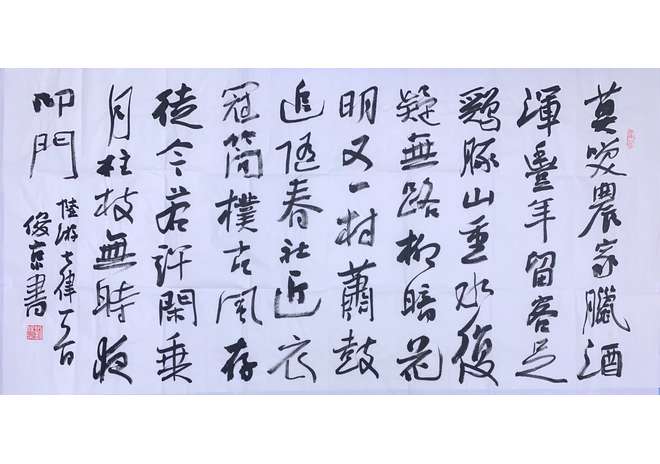 莫笑農家臘酒
渾豐年留客足
鷄豚山重水復
疑無路柳暗花
明又一村蕭鼓
追隨春社近衣
冠簡樸古風存
從今若許閑乘
月拄杖無時夜
叩門
陸游七律一首
俊京書